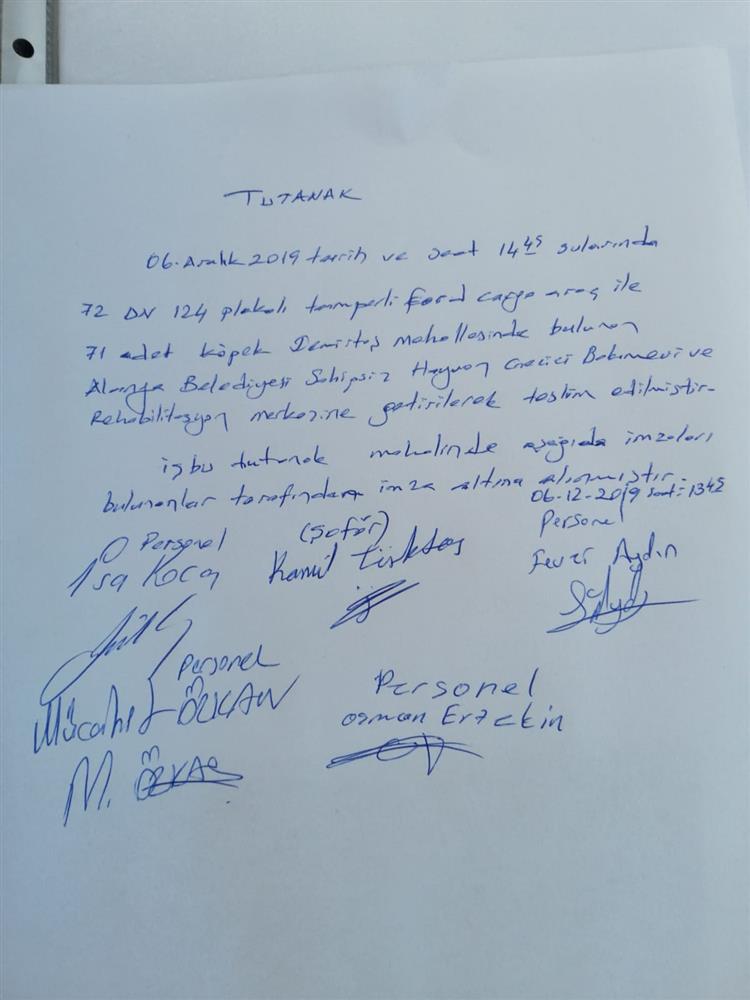 TUTANAK
06. Aralık 2019 tarih ve saat 14 45 sularında
72 DN 124 plakalı tamperli Ford cargo araç ile
71 adet köpek Demirtaş Mahallesinde bulunan
Alanya Belediyesi Sahipsiz Hayvan Gecici Bakımevi ve
Rehabilitasyon merkezine getirilerek teslim edilmiştir.
işbu tutanak mahalinde aşağıda imzaları
bulunanlar tarafından imza altına alınmıştır.
06-12-2019 saat: 1345
Personel (Şoför) Personel
İsa Koca Kamil Fevzi Aydın
Personel
Mücahit ÖZKAN
Personel
Osman
M.